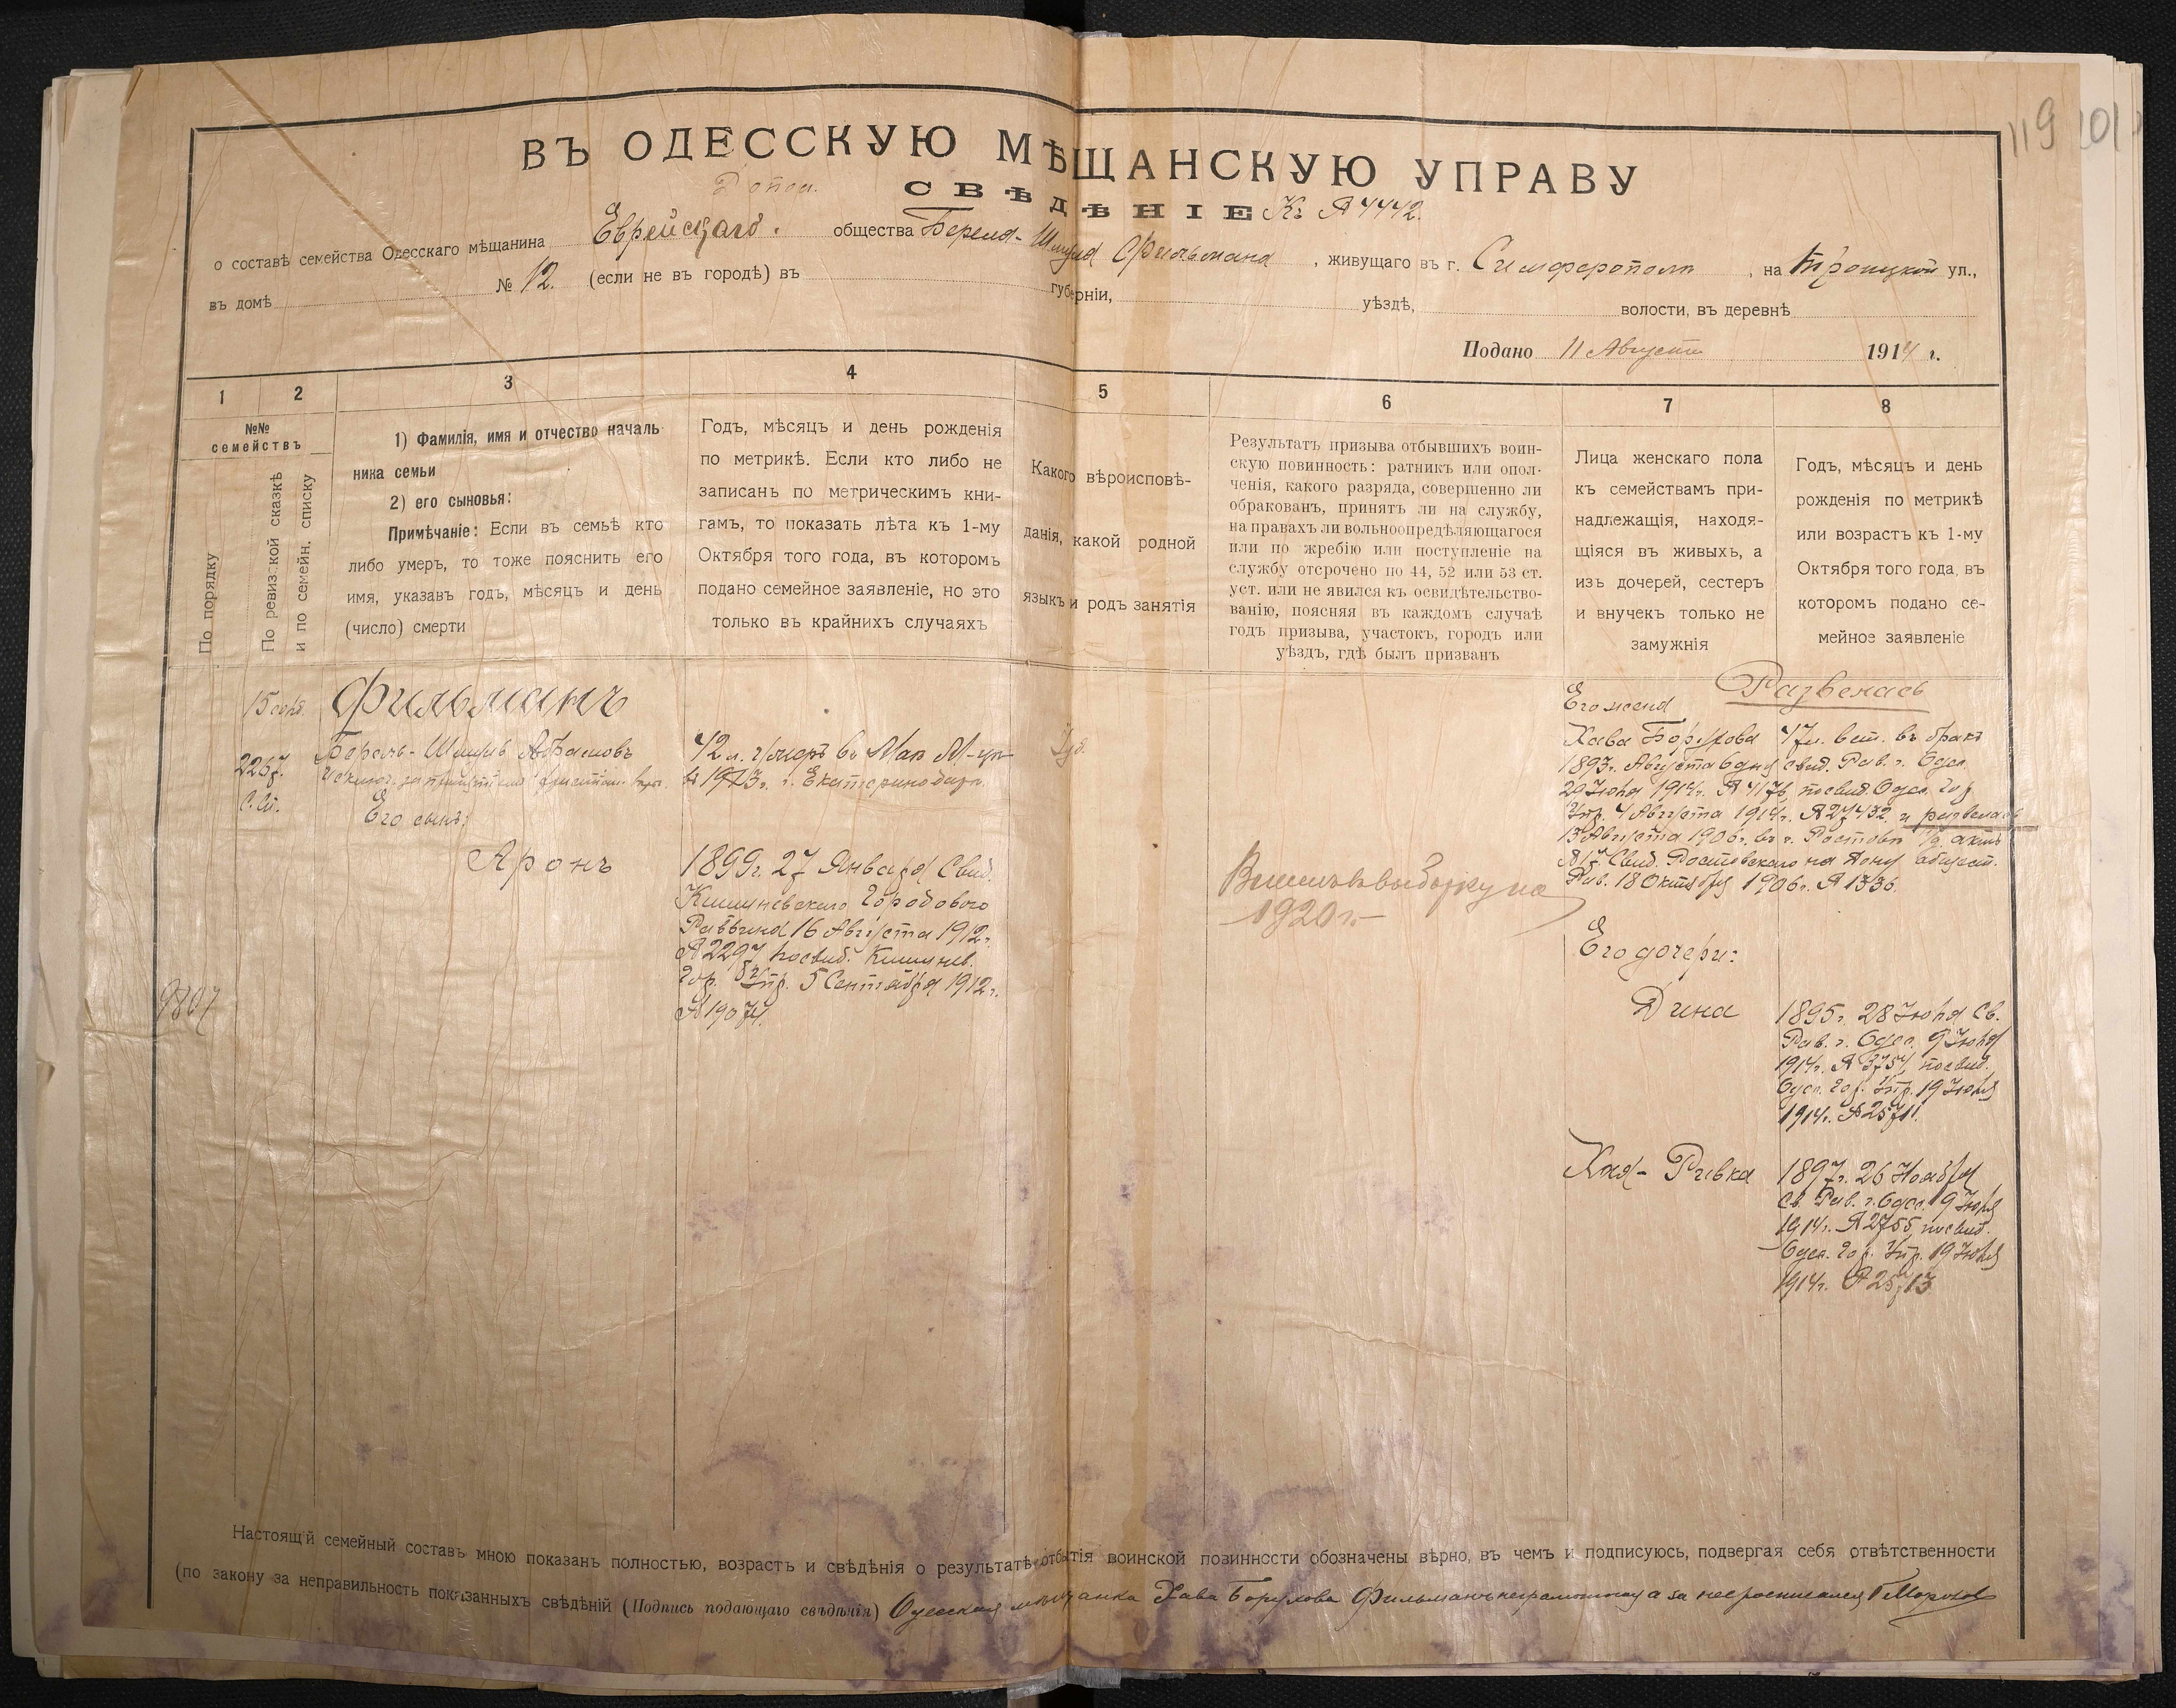 119 101
ВЪ ОДЕССКУЮ МѢЩАНСКУЮ УПРАВУ
СВѢДѢНІЕ Къ № 4442.
о составѣ семейства Одесскаго мѣщанина Еврейскаго общества Береля-Шмуля Фильмана, живущаго въ г. Симферополѣ, на Троицкой ул.,
въ домѣ № 12. (если не въ городѣ) въ губерніи, уѣздѣ, волости, въ деревнѣ
Подано 11 Августа 1914 г.
1
2
3
4
5
6
7
8
№№
семействъ
По порядку
По ревизской сказкѣ
и по семейн. списку
1) Фамилія, имя и отчество началь
ника семьи
2) его сыновья:
Примѣчаніе: Если въ семьѣ кто
либо умеръ, то тоже пояснить его
имя, указавъ годъ, мѣсяцъ и день
(число) смерти
Годъ, мѣсяцъ и день рожденія
по метрикѣ. Если кто либо не
записанъ по метрическимъ кни-
гамъ, то показать лѣта къ 1-му
Октября того года, въ которомъ
подано семейное заявленіе, но это
только въ крайнихъ случаяхъ
Какого вѣроисповѣ-
данія, какой родной
языкъ и родъ занятія
Результатъ призыва отбывшихъ воин-
скую повинность: ратникъ или опол-
ченія, какого разряда, совершенно ли
обракованъ, принятъ ли на службу,
на правахъ ли вольноопредѣляющагося
или по жребію или поступленіе на
службу отсрочено по 44, 52 или 53 ст.
уст. или не явился къ освидѣтельство-
ванію, поясняя въ каждомъ случаѣ
годъ призыва, участокъ, городъ или
уѣздъ, гдѣ былъ призванъ
Лица женскаго пола
къ семействамъ при-
надлежащія, находя-
щіяся въ живыхъ, а
изъ дочерей, сестеръ
и внучекъ только не
замужнія
Годъ, мѣсяцъ и день
рожденія по метрикѣ
или возрастъ къ 1-му
Октября того года, въ
которомъ подано се-
мейное заявленіе
Фильманъ
2267.
Берель-Шмуль Абрамовъ
Его сынъ:
Аронъ
42 л.
г. Екатеринодаръ.
1899 г. 27 Января Свид.
Кишиневскаго Городового
Раввина 16 Августа 1912 г.
№ 2297 посвид. Кишинев.
Гор. Упр. 5 Сентября 1912 г.
№ 19074.
Іуд.
1920 г.
Его жена Развелась
Хава Борухова 47 л. вст. въ бракъ
1893 г. Августа 6 дня свид. Рав. г. Одес.
1914 г. № 4176, посвид. Одес. Гор.
Упр. 4 Августа 1914 г. № 27432 и развелась
13 Августа 1906 г. въ г. Ростовѣ н/Д. актъ
№ 17. Свид. Ростовскаго на Дону общест.
Рав. 18 Октября 1906 г. № 1336.
Его дочери:
Дина
1895 г. 28 Іюня Св.
Рав. г. Одес. 9 Іюня
1914 г. № 3754, посвид.
Одес. Гор. Упр. 19 Іюня
1914 г. № 25711.
Хая-Ривка
1897 г. 26 Ноября
Св. Рав. г. Одес. 9 Іюня
1914 г. № 2755 посвид.
Одес. Гор. Упр. 19 Іюня
1914 г. № 25713
9807
Настоящій семейный составъ мною показанъ полностью, возрастъ и свѣдѣнія о результатѣ отбытія воинской повинности обозначены вѣрно, въ чемъ и подписуюсь, подвергая себя отвѣтственности
(по закону за неправильность показанныхъ свѣдѣній (Подпись подающаго свѣдѣнія) Одесская мѣщанка Хава Борухова Фильманъ неграмотная а за нее росписался